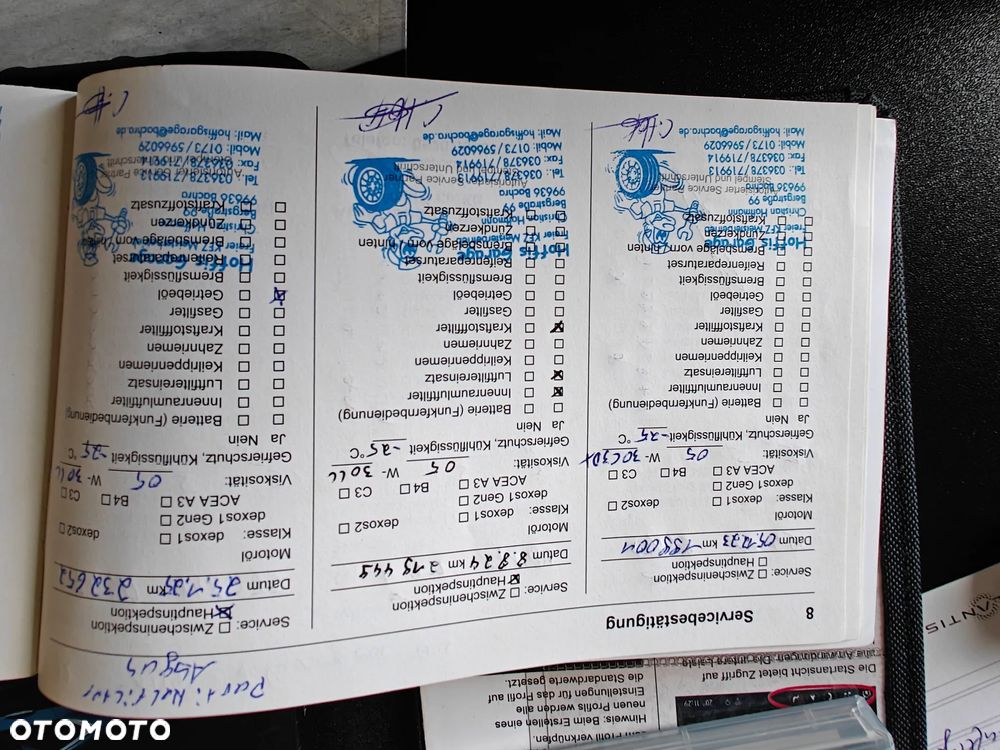 8 Servicebestätigung
Service: ☐ Zwischeninspektion
☐ Hauptinspektion
Datum 05.12.23 km
Motoröl
Klasse: ☐ dexos1 ☐ dexos2
☐ dexos1 Gen2
☐ ACEA A3 ☐ B4 ☐ C3
Viskosität: 05 W- 30
Gefrierschutz, Kühlflüssigkeit -25 °C
Ja Nein
☐ ☐ Batterie (Funkfernbedienung)
☐ ☐ Innenraumluftfilter
☐ ☐ Luftfiltereinsatz
☐ ☐ Keilrippenriemen
☐ ☐ Zahnriemen
☐ ☐ Kraftstofffilter
☐ ☐ Gasfilter
☐ ☐ Getriebeöl
☐ ☐ Bremsflüssigkeit
☐ ☐ Reifenreparaturset
☐ ☐ Bremsbeläge vorn / hinten
☐ ☐ Zündkerzen
☐ ☐ Kraftstoffzusatz
Hoffis Garage
Freier KFZ Meisterbetrieb
Christian Hoffmann
Bergstraße 99
99636 Bachra
Autorisierter Service Partner
Stempel und Unterschrift
Tel.: 036378/719913
Fax: 036378/719914
Mobil: 0173/5966029
Mail: hoffisgarage@bachra.de
Service: ☐ Zwischeninspektion
☒ Hauptinspektion
Datum 8.8.24 km 219449
Klasse: ☐ dexos1 ☐ dexos2
☐ dexos1 Gen2
☐ ACEA A3 ☐ B4 ☐ C3
Viskosität: 05 W- 30 LL
Gefrierschutz, Kühlflüssigkeit -25 °C
Ja Nein
☐ ☐ Batterie (Funkfernbedienung)
☒ ☐ Innenraumluftfilter
☒ ☐ Luftfiltereinsatz
☐ ☐ Keilrippenriemen
☐ ☐ Zahnriemen
☒ ☐ Kraftstofffilter
☐ ☐ Gasfilter
☐ ☐ Getriebeöl
☐ ☐ Bremsflüssigkeit
☐ ☐ Reifenreparaturset
☐ ☐ Bremsbeläge vorn / hinten
☐ ☐ Zündkerzen
☐ ☐ Kraftstoffzusatz
Hoffis Garage
Freier KFZ Meisterbetrieb
Christian Hoffmann
Bergstraße 99
99636 Bachra
Autorisierter Service Partner
Stempel und Unterschrift
Tel.: 036378/719913
Fax: 036378/719914
Mobil: 0173/5966029
Mail: hoffisgarage@bachra.de
Service: ☐ Zwischeninspektion
☒ Hauptinspektion
Datum km 232652
Motoröl
Klasse: ☐ dexos1 ☐ dexos2
☐ dexos1 Gen2
☐ ACEA A3 ☐ B4 ☐ C3
Viskosität: 05 W- 30 LL
Gefrierschutz, Kühlflüssigkeit -25 °C
Ja Nein
☐ ☐ Batterie (Funkfernbedienung)
☐ ☐ Innenraumluftfilter
☐ ☐ Luftfiltereinsatz
☐ ☐ Keilrippenriemen
☐ ☐ Zahnriemen
☐ ☐ Kraftstofffilter
☐ ☐ Gasfilter
☒ ☐ Getriebeöl
☐ ☐ Bremsflüssigkeit
☐ ☐ Reifenreparaturset
☐ ☐ Bremsbeläge vorn
☐ ☐ Zündkerzen
☐ ☐ Kraftstoffzusatz
Hoffis Garage
Bergstraße 99
99636 Bachra
Autorisierter Service Partner
Stempel und Unterschrift
Tel.: 036378/719913
Fax: 036378/719914
Mobil: 0173/5966029
Mail: hoffisgarage@bachra.de
Die Startansicht bietet Zugriff auf
alle Anwendungen. Die untere Leiste
Hinweis: Beim Erstellen eines
neuen Profils werden alle
Einstellungen für das Profil auf
die Standardwerte gesetzt.
OTOMOTO